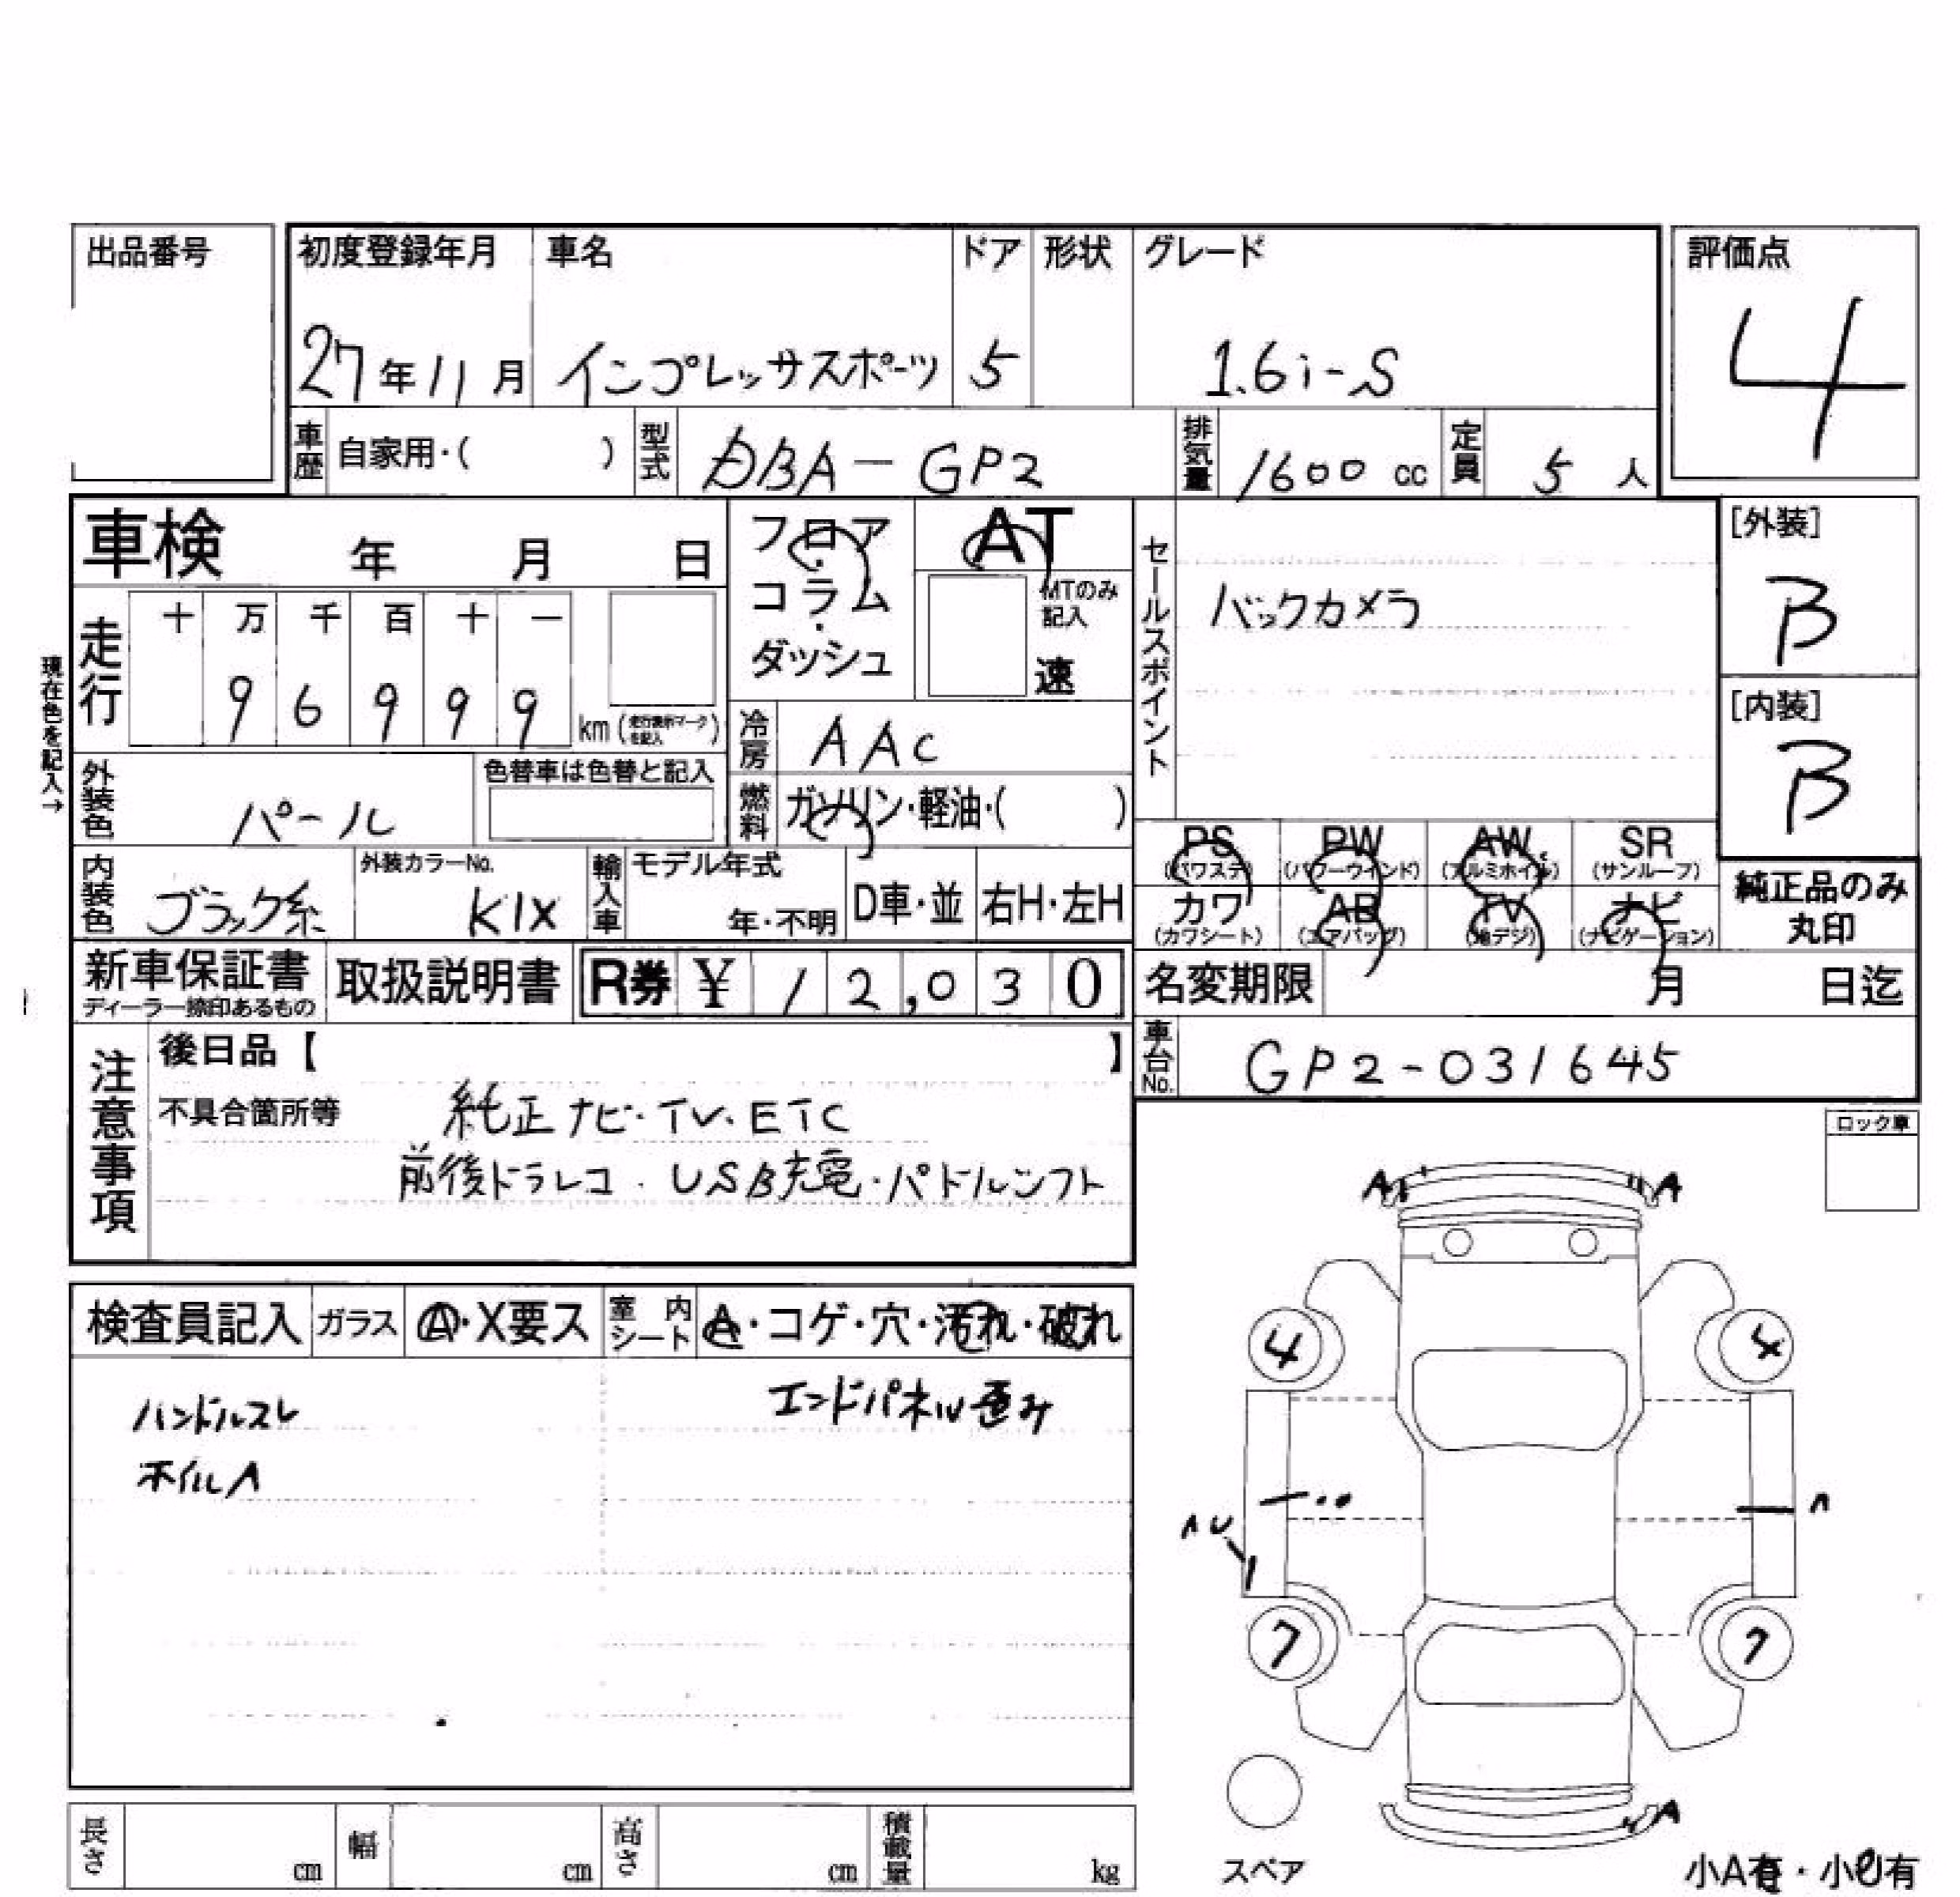 出品番号
初度登録年月 車名 ドア 形状 グレード 評価点
27年11月 インプレッサスポーツ 5 1.6i-S 4
車歴 自家用・( ) 型式 DBA-GP2 排気量 1600 cc 定員 5 人
車検 年 月 日
フロア・コラム・ダッシュ
AT
MTのみ記入
速
セールスポイント
バックカメラ
[外装]
B
[内装]
B
現在色を記入→
走行 十 万 千 百 十 一
9 6 9 9 9 km (走行表示マークを記入)
冷房 AAC
外装色 パール 色替車は色替と記入
燃料 ガソリン・軽油・( )
PS (パワステ) PW (パワーウインド) AW (アルミホイル) SR (サンルーフ)
カワ (カワシート) AB (エアバッグ) TV (地デジ) ナビ (ナビゲーション)
純正品のみ丸印
内装色 ブラック系 外装カラーNo. K1X 輸入車 モデル年式 年・不明 D車・並 右H・左H
新車保証書 ディーラー捺印あるもの 取扱説明書 R券 ¥ 12,030
名変期限 月 日迄
車台No. GP2-031645
注意事項
後日品【 】
不具合箇所等 純正ナビ・TV・ETC
前後ドラレコ・USB充電・パドルシフト
ロック車
検査員記入 ガラス A・X要ス 室内シート A・コゲ・穴・汚れ・破れ
ハンドルスレ エンドパネル歪み
ホイルA
A A
4 4
A U A
7 7
A
スペア
小A有・小U有
長さ cm 幅 cm 高さ cm 積載量 kg